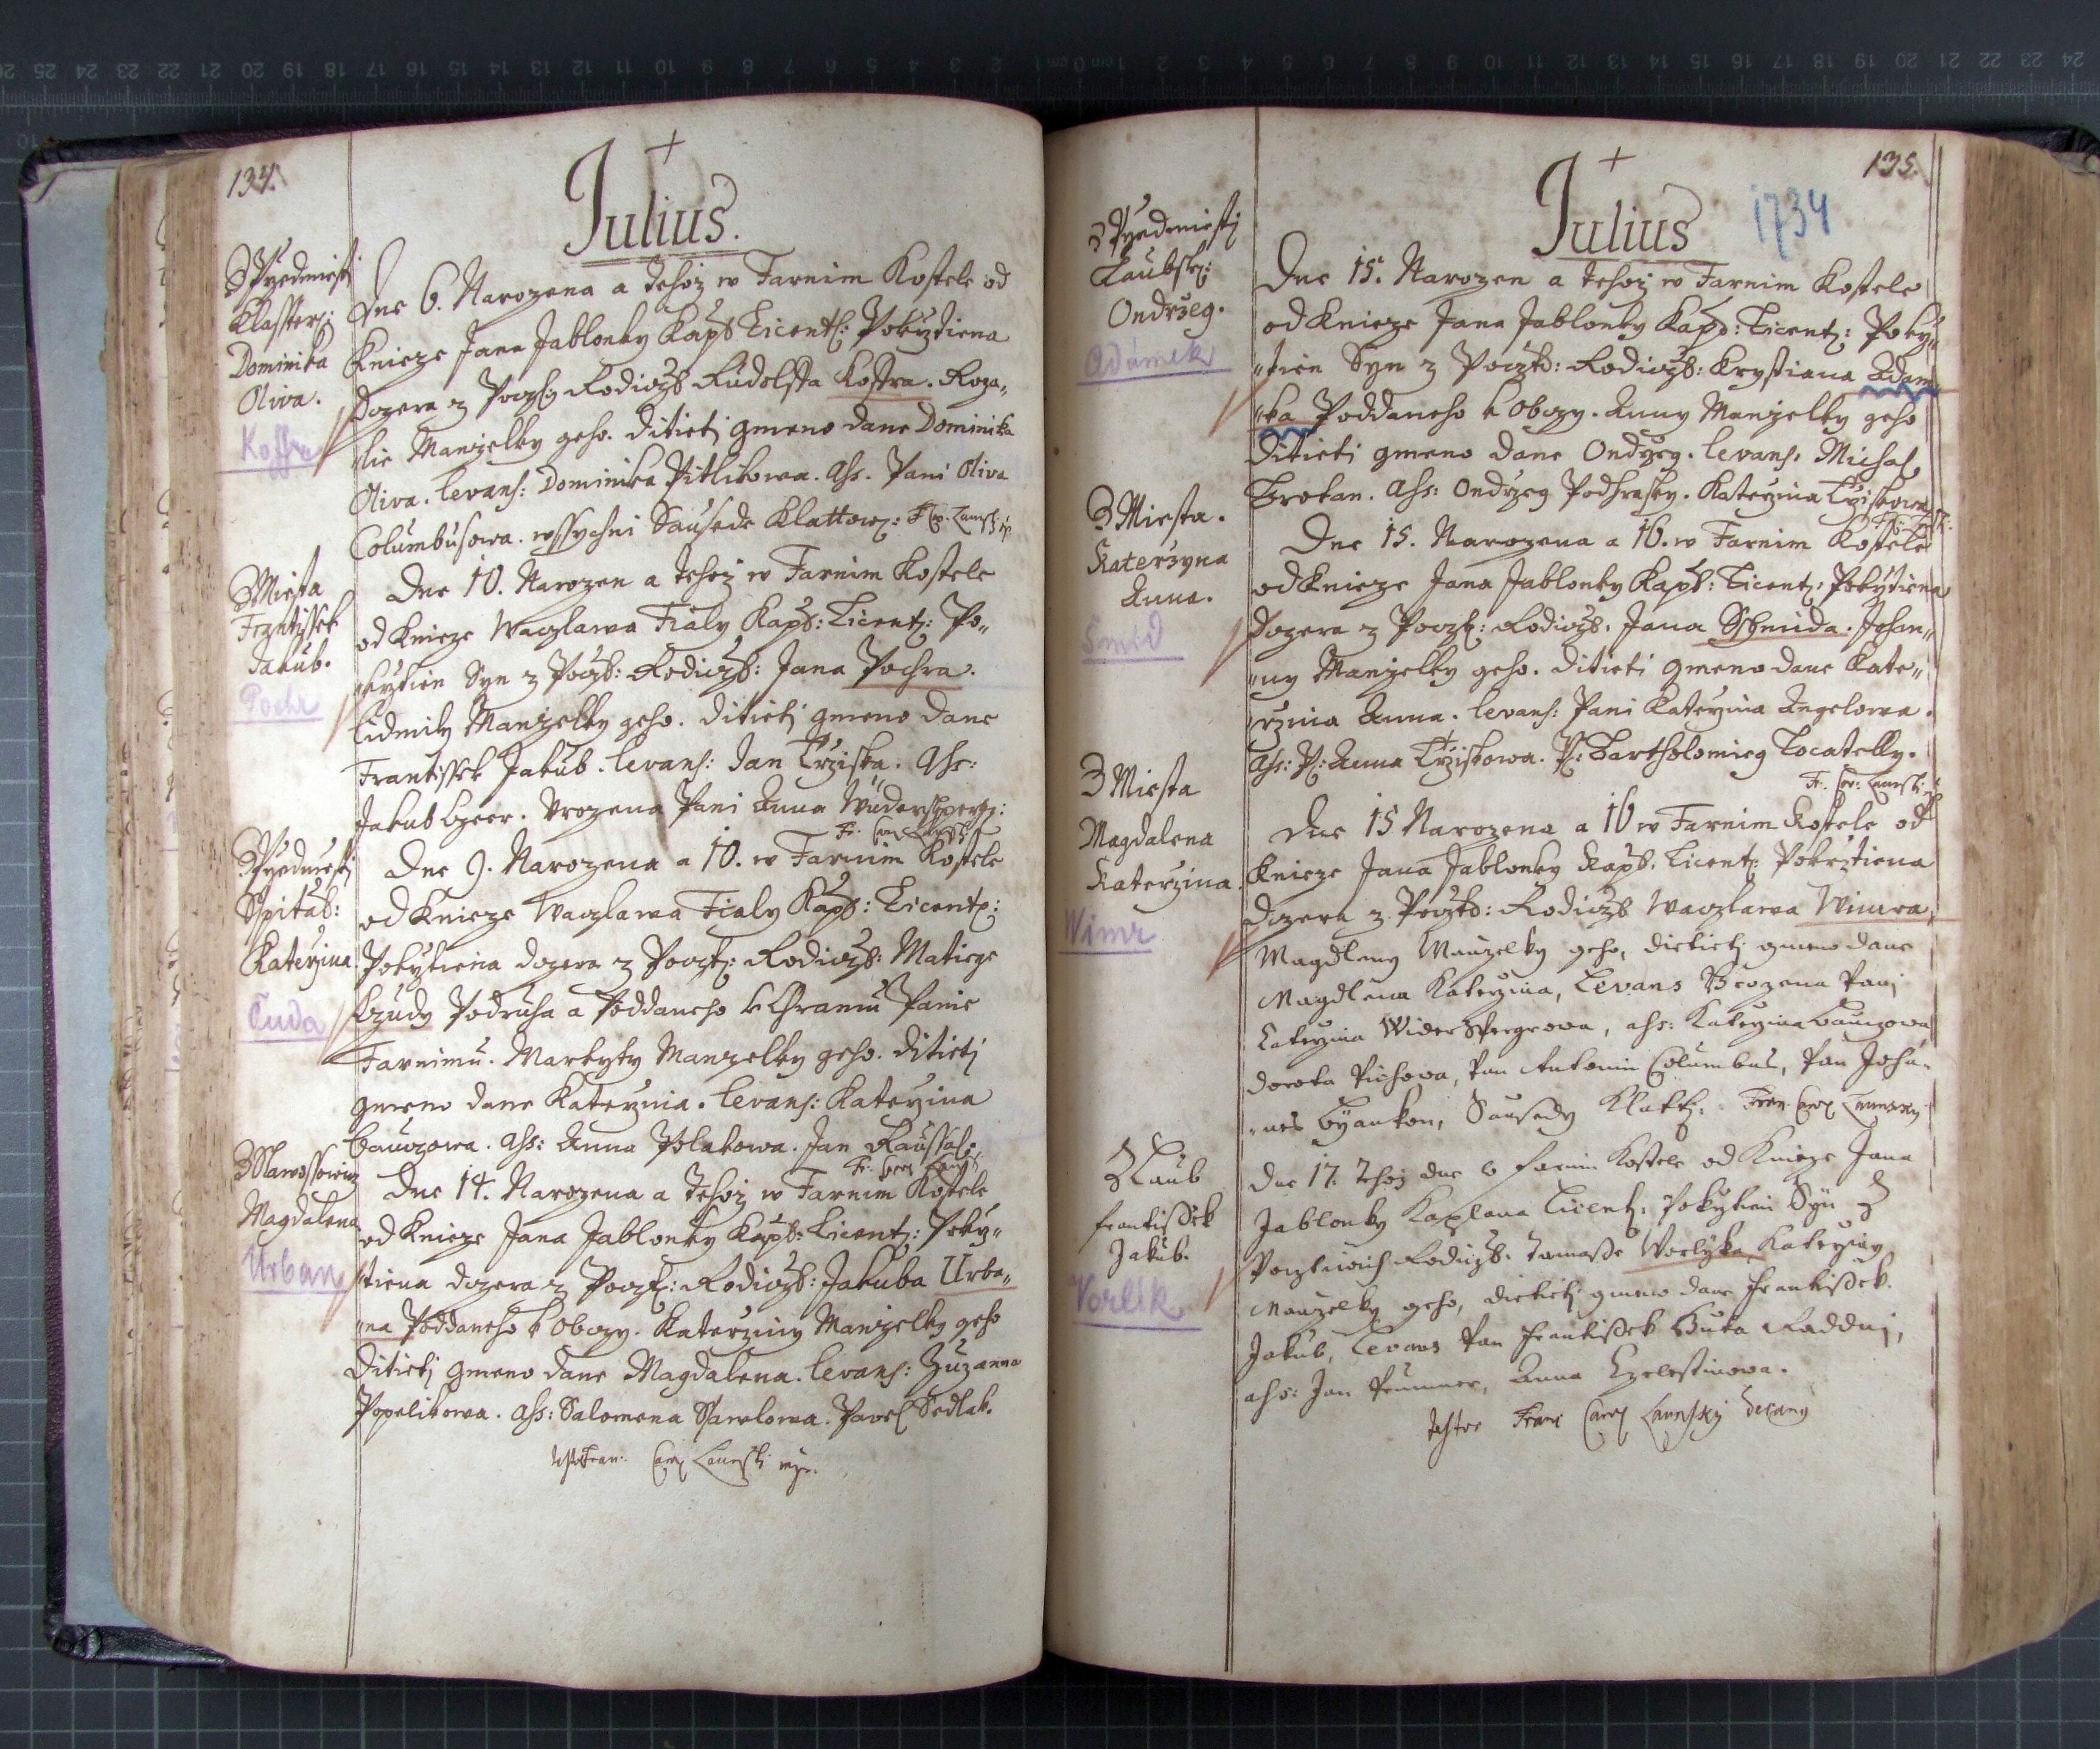 134.
Julius.
Z Przedmiesti
Klasster:
Dominika
Oliva.
Koffra
Dne 6. Narozena a tehoz w Farnim Kostele od
Knieze Jana Jablonky Kapl: Licent: Pokrztiena
Dczera z Pocz: Rodicžů Rudolffa Koffra. Roza„
„lie Manzelky geho. Ditieti gmeno dane Dominika
Oliva. Levans: Dominika Pitlikowa. Ass. Pani Oliva
Columbusowa. wssychni Sausede Klattow:
Z Miesta
Frantissek
Jakub.
Pochr
Dne 10. Narozen a tehoz w Farnim Kostele
od Knieze Waczlawa Fialy Kapl: Licent: Po„
„krztien Syn z Pocz: Rodicžů: Jana Pochra.
Lidmily Manzelky geho. Ditieti gmeno dane
Frantissek Jakub. Levans: Jan Trziska. Ass:
Jakub Beer. Urozena Pani Anna Widersperg:
Z Przedmiesti
Spitál:
Katerzina
Čuda
Dne 9. Narozena a 10. w Farnim Kostele
od Knieze Waczlawa Fialy Kapl: Licent:
Pokrztiena dczera z Pocz: Rodicžů: Matiege
Czudy Podruha a Poddaneho k Chramu Panie
Farnimu. Markyty Manzelky geho. Ditieti
gmeno dane Katerzina. Levans: Katerzina
Cauczowa. Ass: Anna Polakowa. Jan
Magdalena
Urban
Dne 14. Narozena a tehoz w Farnim Kostele
od Knieze Jana Jablonky Kapl: Licent: Pokrz„
„tiena dczera z Pocz: Rodicžů: Jakuba Urba„
„na Poddaneho k Obczy. Katerziny Manzelky geho
Ditieti gmeno dane Magdalena. Levans: Zuzanna
Popelikowa. Ass: Salomena Pawlowa. Pavel Sedlak.
135.
Julius
1734
Z Przedmiesti
Laubsk:
Ondrzeg.
Adámek
Dne 15. Narozen a tehoz w Farnim Kostele
od Knieze Jana Jablonky Kapl: Licent: Pokrz„
„tien Syn z Pocžt: Rodicžů: Krystiana Adam„
„ka Poddaneho k Obczy. Anny Manzelky geho
Ditieti gmeno dane Ondrzeg. Levans. Michal
Brokan. Ass: Ondrzeg Podhrasky. Katerzina Trziskowa
Z Miesta.
Katerzyna
Anna.
Šmid
Dne 15. Narozena a 16. w Farnim Kostele
od Knieze Jana Jablonky Kapl: Licent: Pokrztiena
Dczera z Pocz: Rodicžů. Jana Schmida. Johan„
„ny Manzelky geho. Ditieti gmeno dane Kate„
„rzina Anna. Levans: Pani Katerzina Angelowa.
Ass: P: Anna Trziskowa. P: Bartholomieg Locatelly.
Z Miesta
Magdalena
Katerzina.
Wimr
Dne 15 Narozena a 16 w Farnim Kostele od
Knieze Jana Jablonky Kapl. Licent: Pokrztiena
Dczera z Pocžt: Rodicžů Waczlawa Wimra,
Magdleny Manzelky geho, dietieti gmeno dane
Magdlena Katerzina, Levans Urozena Pani
Katerzina Widerspergrowa, ass: Katerzina Cauczowa
Dorota Pichowa, Pan Antonin Columbus, Pan Joha„
„nes Byankon, Sausedy Klatt:
Z Laub
Frantissek
Jakub.
Vorlík
Dne 17. Tehoz dne w Farnim Kostele od Knieze Jana
Jablonky Kaplana Licent: Pokrztien Syn z
Pocztiwich Rodicžů. Tomasse Worlyka Katerziny
Manzelky geho, dietieti gmeno dane Frantissek.
Jakub, Levans Pan Frantissek Buka Raddni,
ass: Jan Krumner, Anna Czelestinowa.